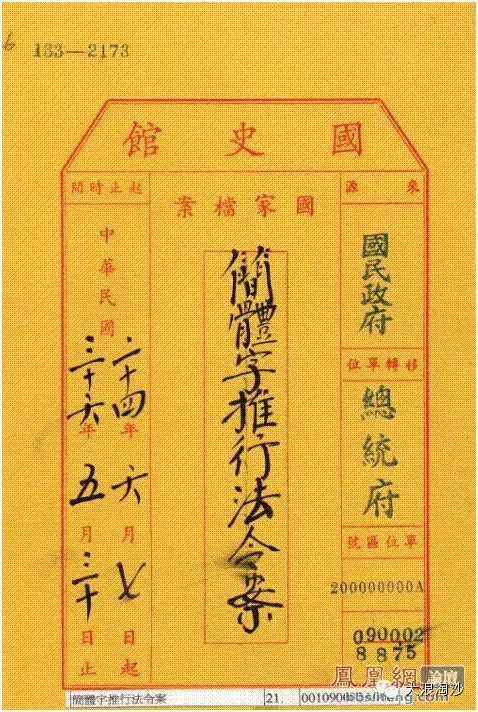 133—2173
國史館
來源
國民政府
移轉單位
總統府
單位區號
200000000A
090002
8875
國家檔案
簡體字推行法令案
起止時間
中華民國
二十四年六月七日起
三十六年五月三十日止
鳳凰網 論壇
大浪淘沙
簡體字推行法令案 21.